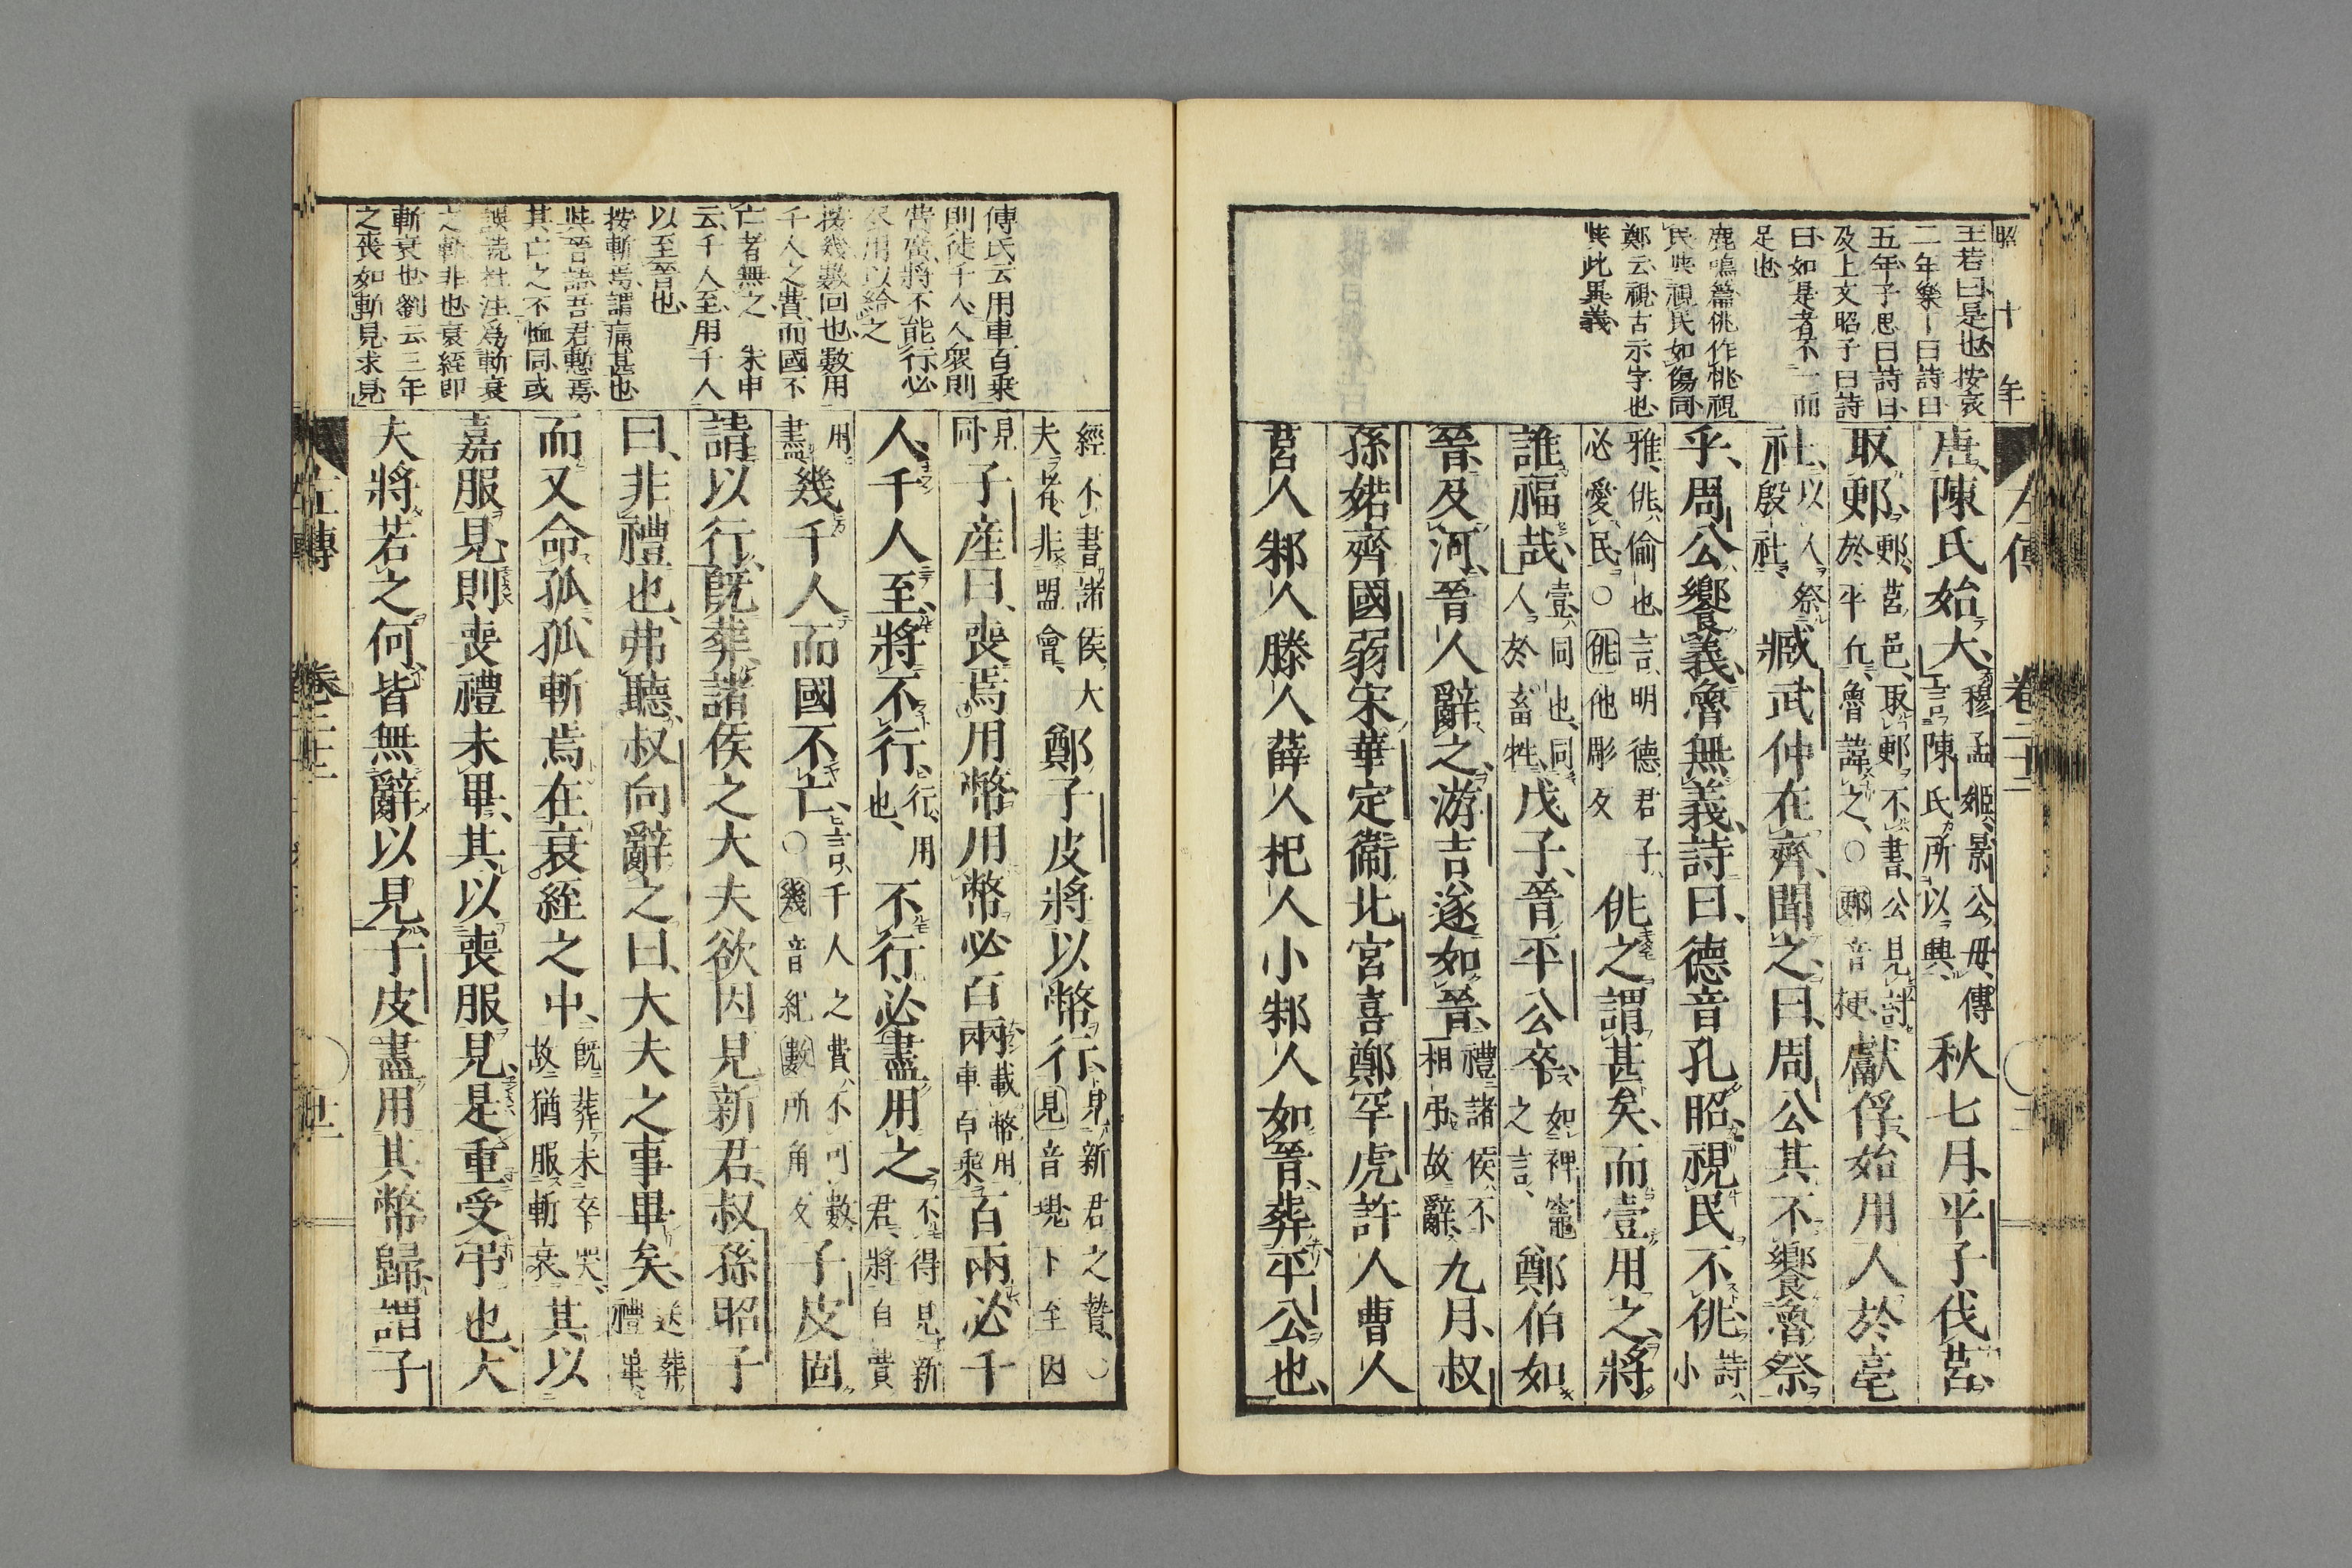 昭 十 年
王若曰是也按哀
二年樂丨曰詩曰
五年子思曰詩曰
及上文昭子曰詩
曰如是者不一而
足也
鹿鳴篇佻作恌視
民與視民如傷同
鄭云視古示字也
與此異義
左傳 卷二十二
唐陳氏始大穆孟姬景公母傳
言陳氏所以興秋七月平子伐莒
取郠郠莒邑取郠不書公見討
於平丘魯諱之○郠音梗獻俘始用人於亳
社以人祭
殷社臧武仲在齊聞之曰周公其不饗魯祭
乎周公饗義魯無義詩曰德音孔昭視民不佻詩小
雅佻偷也言明德君子
必愛民○佻他彫反佻之謂甚矣而壹用之將
誰福哉壹同也同
人於畜牲戊子晉平公卒如裨竈
之言鄭伯如
晉及河晉人辭之游吉遂如晉禮諸侯不
相弔故辭九月叔
孫婼齊國弱宋華定衞北宮喜鄭罕虎許人曹人
莒人邾人滕人薛人杞人小邾人如晉葬平公也
傅氏云用車百乘
則徒千人人衆則
費廣將不能行必
盡用以給之
按幾數回也數用
千人之費而國不
亡者無之 朱申
云千人至用千人
以至晉也
按斬焉謂痛甚也
與晉語吾君慙焉
其亡之不恤同或
誤讀杜注爲斬衰
之斬非也衰絰即
斬衰也劉云三年
之喪如斬見求見
經不書諸侯大
夫者非盟會鄭子皮將以幣行見新君之贄○
見音現卜至因
見
同子産曰喪焉用幣用幣必百兩載幣用
車百乘百兩必千
人千人至將不行行用
也不行必盡用之不得見新
君將自費
用
盡幾千人而國不亡言千人之費不可數
○幾音紀數所角反子皮固
請以行旣葬諸侯之大夫欲因見新君叔孫昭子
曰非禮也弗聽叔向辭之曰大夫之事畢矣送葬
禮畢
而又命孤孤斬焉在衰絰之中旣葬未卒哭
故猶服斬衰其以
嘉服見則喪禮未畢其以喪服見是重受弔也大
夫將若之何皆無辭以見子皮盡用其幣歸謂子
左傳 卷二十二